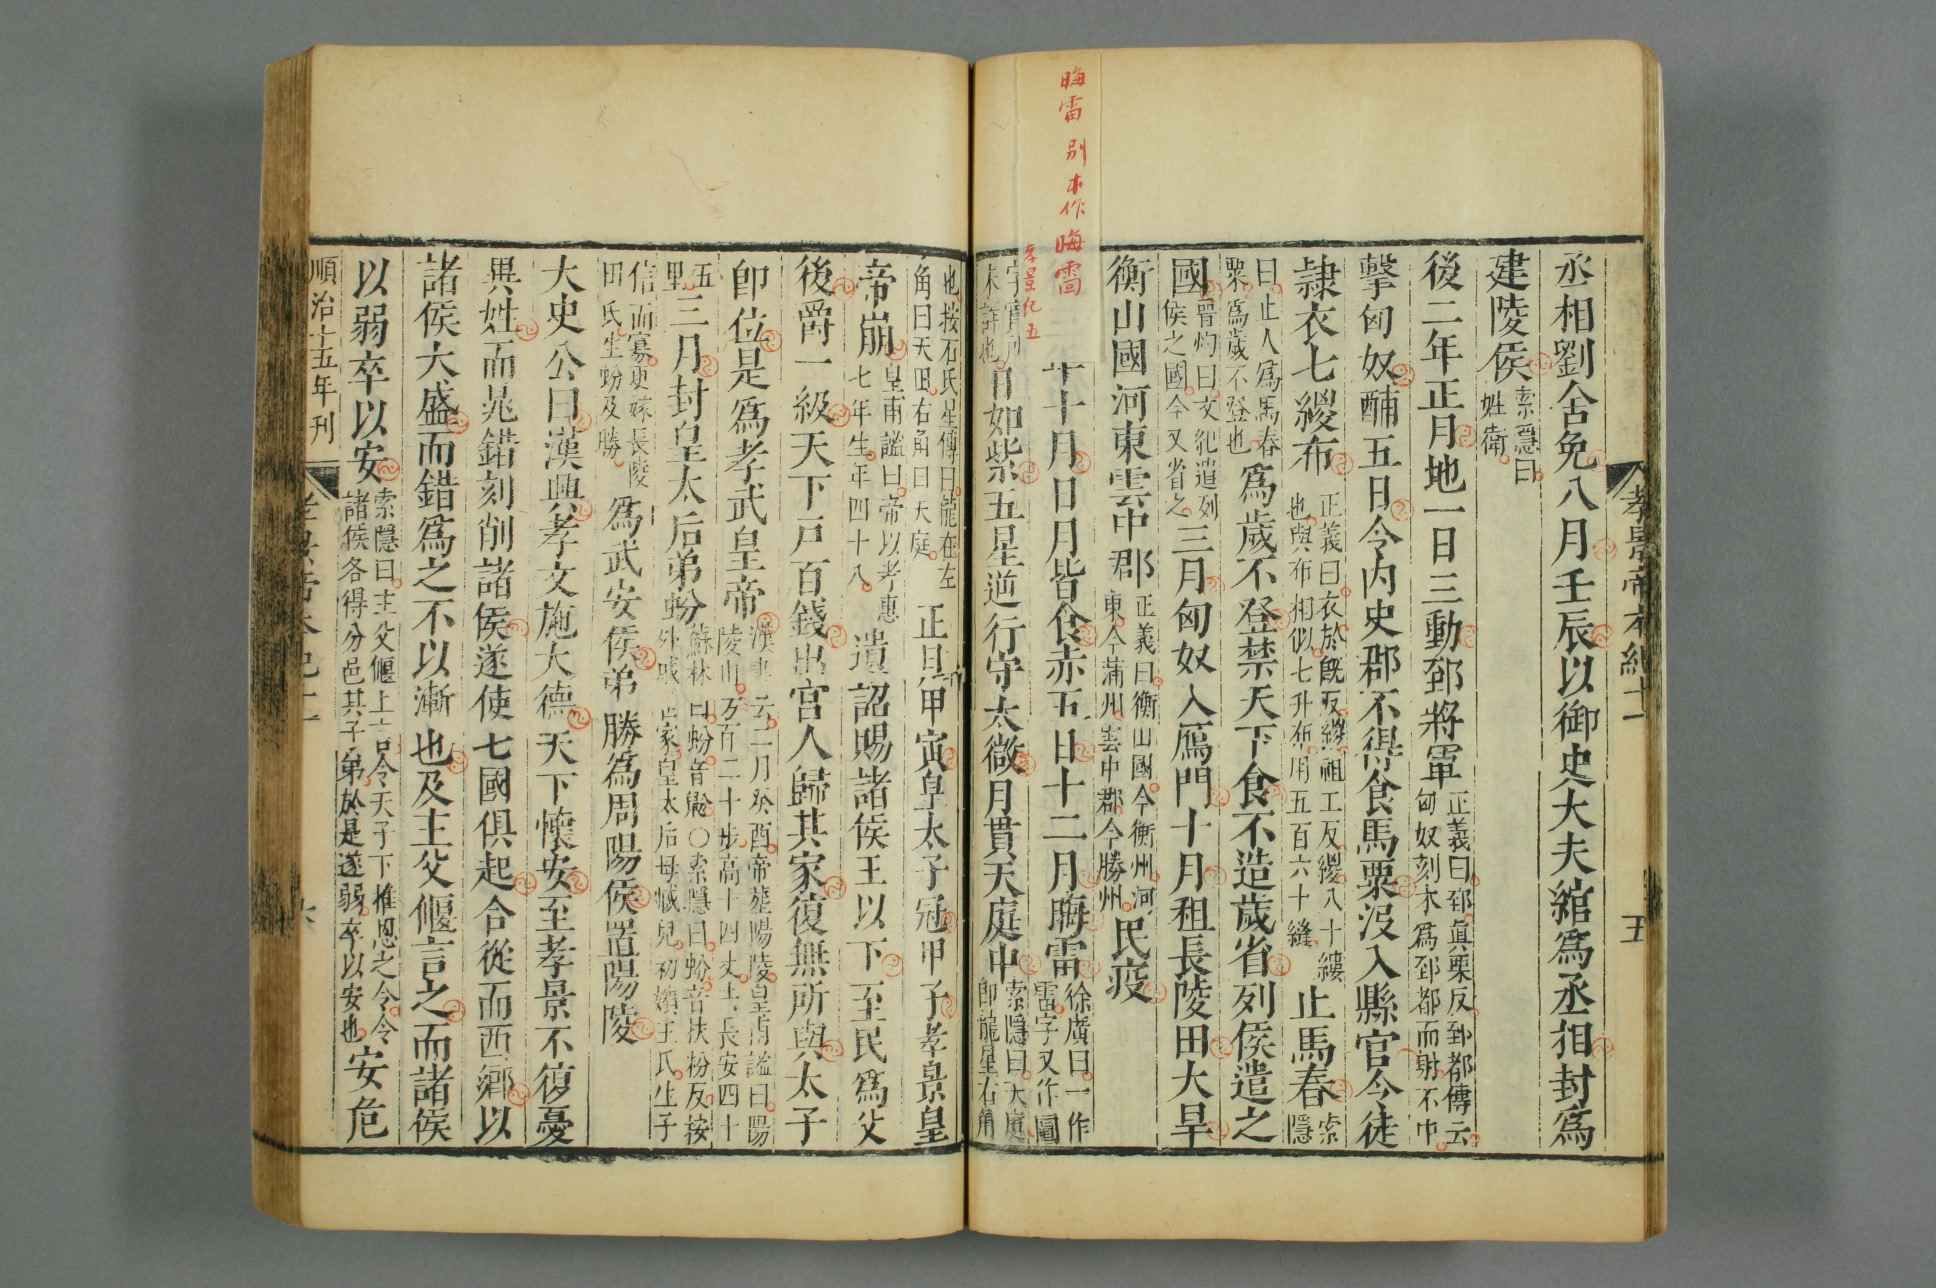 孝景帝本紀十一
五
丞相劉舍免八月壬辰以御史大夫綰爲丞相封爲
建陵侯索隱曰姓衛
後二年正月地一日三動郅將軍正義曰郅眞栗反郅都傳云匈奴刻木爲郅都而射不中
擊匈奴酺五日令內史郡不得食馬粟沒入縣官令徒
隸衣七緵布正義曰衣於旣反緵祖工反緵八十縷也與布相似七升布用五百六十縫止馬舂索隱
曰止人爲馬舂粟爲歲不登也爲歲不登禁天下食不造歲省列侯遣之
國晉灼曰文紀遣列侯之國今又省之三月匈奴入鴈門十月租長陵田大旱
衡山國河東雲中郡正義曰衡山國今衡州河東今蒲州雲中郡今勝州民疫
年十月日月皆食赤五日十二月晦雷徐廣曰一作雷字又作圖
日如紫五星逆行守太微月貫天庭中索隱曰天庭卽龍星右角
晦雷別本作晦雷
孝景紀五
也按石氏星傳曰龍在左角曰天田右角曰天庭正月甲寅皇太子冠甲子孝景皇
帝崩皇甫謐曰帝以孝惠七年生年四十八遺詔賜諸侯王以下至民爲父
後爵一級天下戶百錢出宮人歸其家復無所與太子
卽位是爲孝武皇帝漢書云二月癸酉帝葬陽陵皇甫謐曰陽陵山方百二十步高十四丈去長安四十
五里三月封皇太后弟蚡蘇林曰蚡音鼢〇索隱曰蚡音扶粉反按外戚家皇太后母臧兒初嬪王氏生子
信而寡更嫁長陵田氏生蚡及勝爲武安侯弟勝爲周陽侯置陽陵
大史公曰漢興孝文施大德天下懷安至孝景不復憂
異姓而鼂錯刻削諸侯遂使七國俱起合從而西鄉以
諸侯大盛而錯爲之不以漸也及主父偃言之而諸侯
以弱卒以安索隱曰主父偃上言今天子下推恩之令令諸侯各得分邑其子弟於是遂弱卒以安也安危
順治十五年刊
孝景帝本紀十一
六